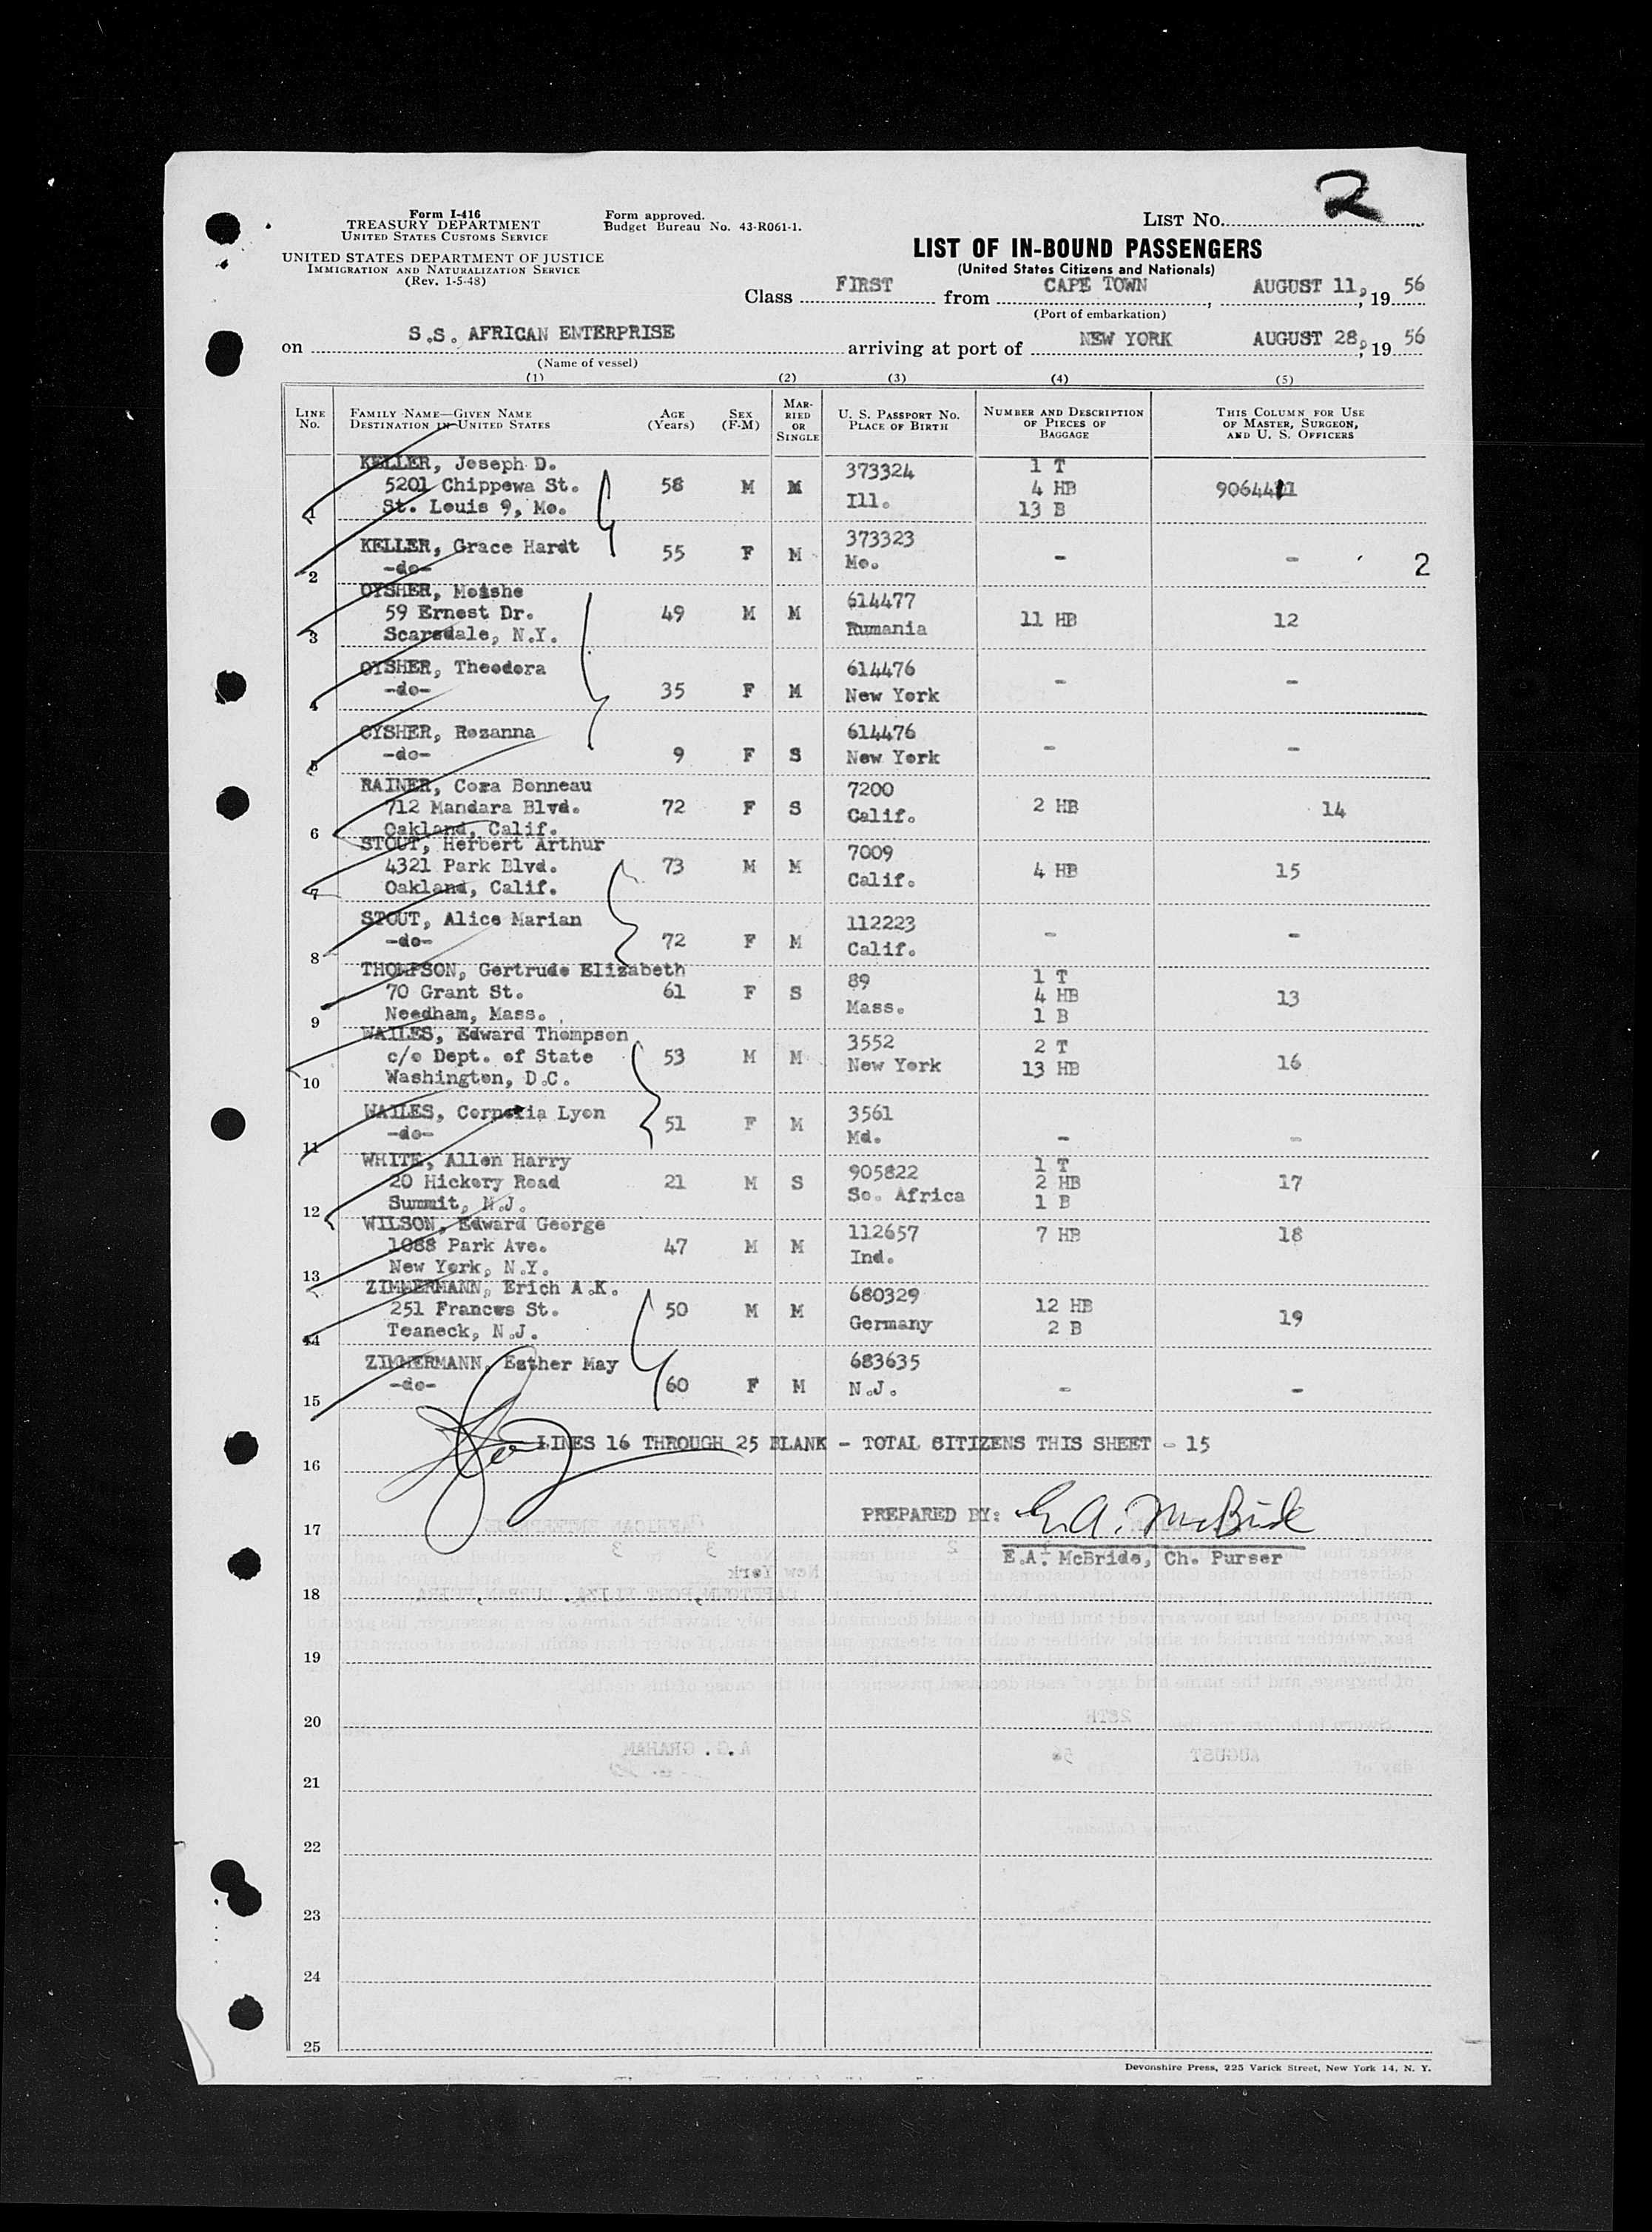 2
Form I-416
TREASURY DEPARTMENT
UNITED STATES CUSTOMS SERVICE
UNITED STATES DEPARTMENT OF JUSTICE
IMMIGRATION AND NATURALIZATION SERVICE
(Rev. 1-5-48)
Form approved.
Budget Bureau No. 43-R061-1.
LIST No.
LIST OF IN-BOUND PASSENGERS
(United States Citizens and Nationals)
Class FIRST from CAPE TOWN, AUGUST 11, 19 56
(Port of embarkation)
on S.S. AFRICAN ENTERPRISE arriving at port of NEW YORK AUGUST 28, 19 56
(Name of vessel)
(1) (2) (3) (4) (5)
LINE No. FAMILY NAME—GIVEN NAME DESTINATION IN UNITED STATES AGE (Years) SEX (F-M) MARRIED OR SINGLE U. S. PASSPORT NO. PLACE OF BIRTH NUMBER AND DESCRIPTION OF PIECES OF BAGGAGE THIS COLUMN FOR USE OF MASTER, SURGEON, AND U. S. OFFICERS
KELLER, Joseph D. 373324 1 T
5201 Chippewa St. 58 M M 4 HB
1 St. Louis 9, Mo. Ill. 13 B
KELLER, Grace Hardt 55 F M 373323 - - 2
2 -do- Mo.
OYSHER, Moishe 614477
59 Ernest Dr. 49 M M 11 HB 12
3 Scarsdale, N.Y. Rumania
OYSHER, Theodora 614476
4 -do- 35 F M New York - -
OYSHER, Rozanna 614476
5 -do- 9 F S New York - -
RAINER, Cora Bonneau 7200
712 Mandara Blvd. 72 F S 2 HB 14
6 Oakland, Calif. Calif.
STOUT, Herbert Arthur 7009
4321 Park Blvd. 73 M M 4 HB 15
7 Oakland, Calif. Calif.
STOUT, Alice Marian 112223
8 -do- 72 F M Calif. - -
THOMPSON, Gertrude Elizabeth 89 1 T
70 Grant St. 61 F S 4 HB 13
9 Needham, Mass. Mass. 1 B
WAILES, Edward Thompson 3552 2 T
c/o Dept. of State 53 M M New York 13 HB 16
10 Washington, D.C.
WAILES, Cornelia Lyon 3561
11 -do- 51 F M Md. - -
WHITE, Allen Harry 905822 1 T
20 Hickory Road 21 M S 2 HB 17
12 Summit, N.J. So. Africa 1 B
WILSON, Edward George 112657 7 HB 18
1088 Park Ave. 47 M M Ind.
13 New York, N.Y.
ZIMMERMANN, Erich A.K. 680329 12 HB
251 Frances St. 50 M M 2 B 19
14 Teaneck, N.J. Germany
ZIMMERMANN, Esther May 683635
15 -do- 60 F M N.J. - -
LINES 16 THROUGH 25 BLANK - TOTAL CITIZENS THIS SHEET - 15
16
PREPARED BY: E.A. McBride
17
E.A. McBride, Ch. Purser
18
19
20
21
22
23
24
25
Devonshire Press, 225 Varick Street, New York 14, N. Y.